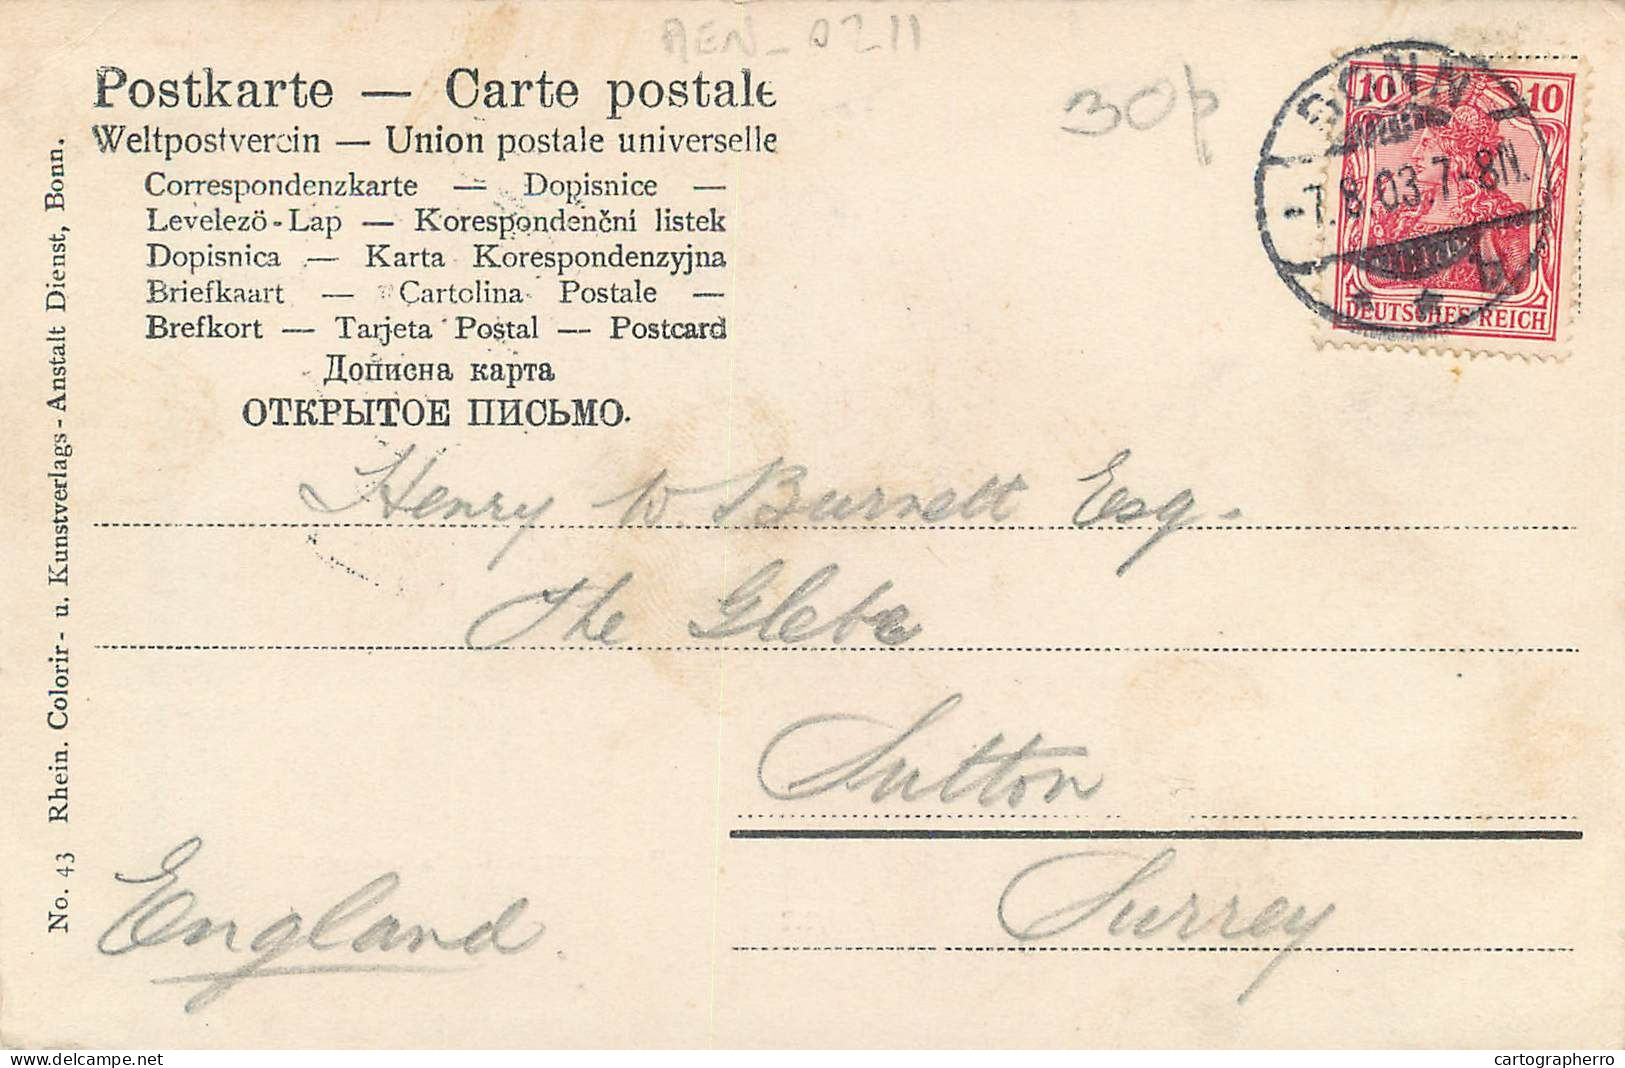 AEN_0211
Postkarte — Carte postale
Weltpostverein — Union postale universelle
Correspondenzkarte — Dopisnice —
Levelezö-Lap — Korespondenční listek
Dopisnica — Karta Korespondenzyjna
Briefkaart — Cartolina Postale —
Brefkort — Tarjeta Postal — Postcard
Дописна карта
ОТКРЫТОЕ ПИСЬМО.
30p
BONN
-7.8.03.7-8N.
10 10
DEUTSCHES REICH
Henry W Burnett Esq.
The Glebe
Sutton
Surrey
England.
No. 43 Rhein. Colorir- u. Kunstverlags-Anstalt Dienst, Bonn.
cartographerro